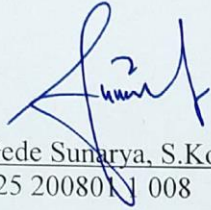 ede Sunarya, S.Ko
25 200801 1 008